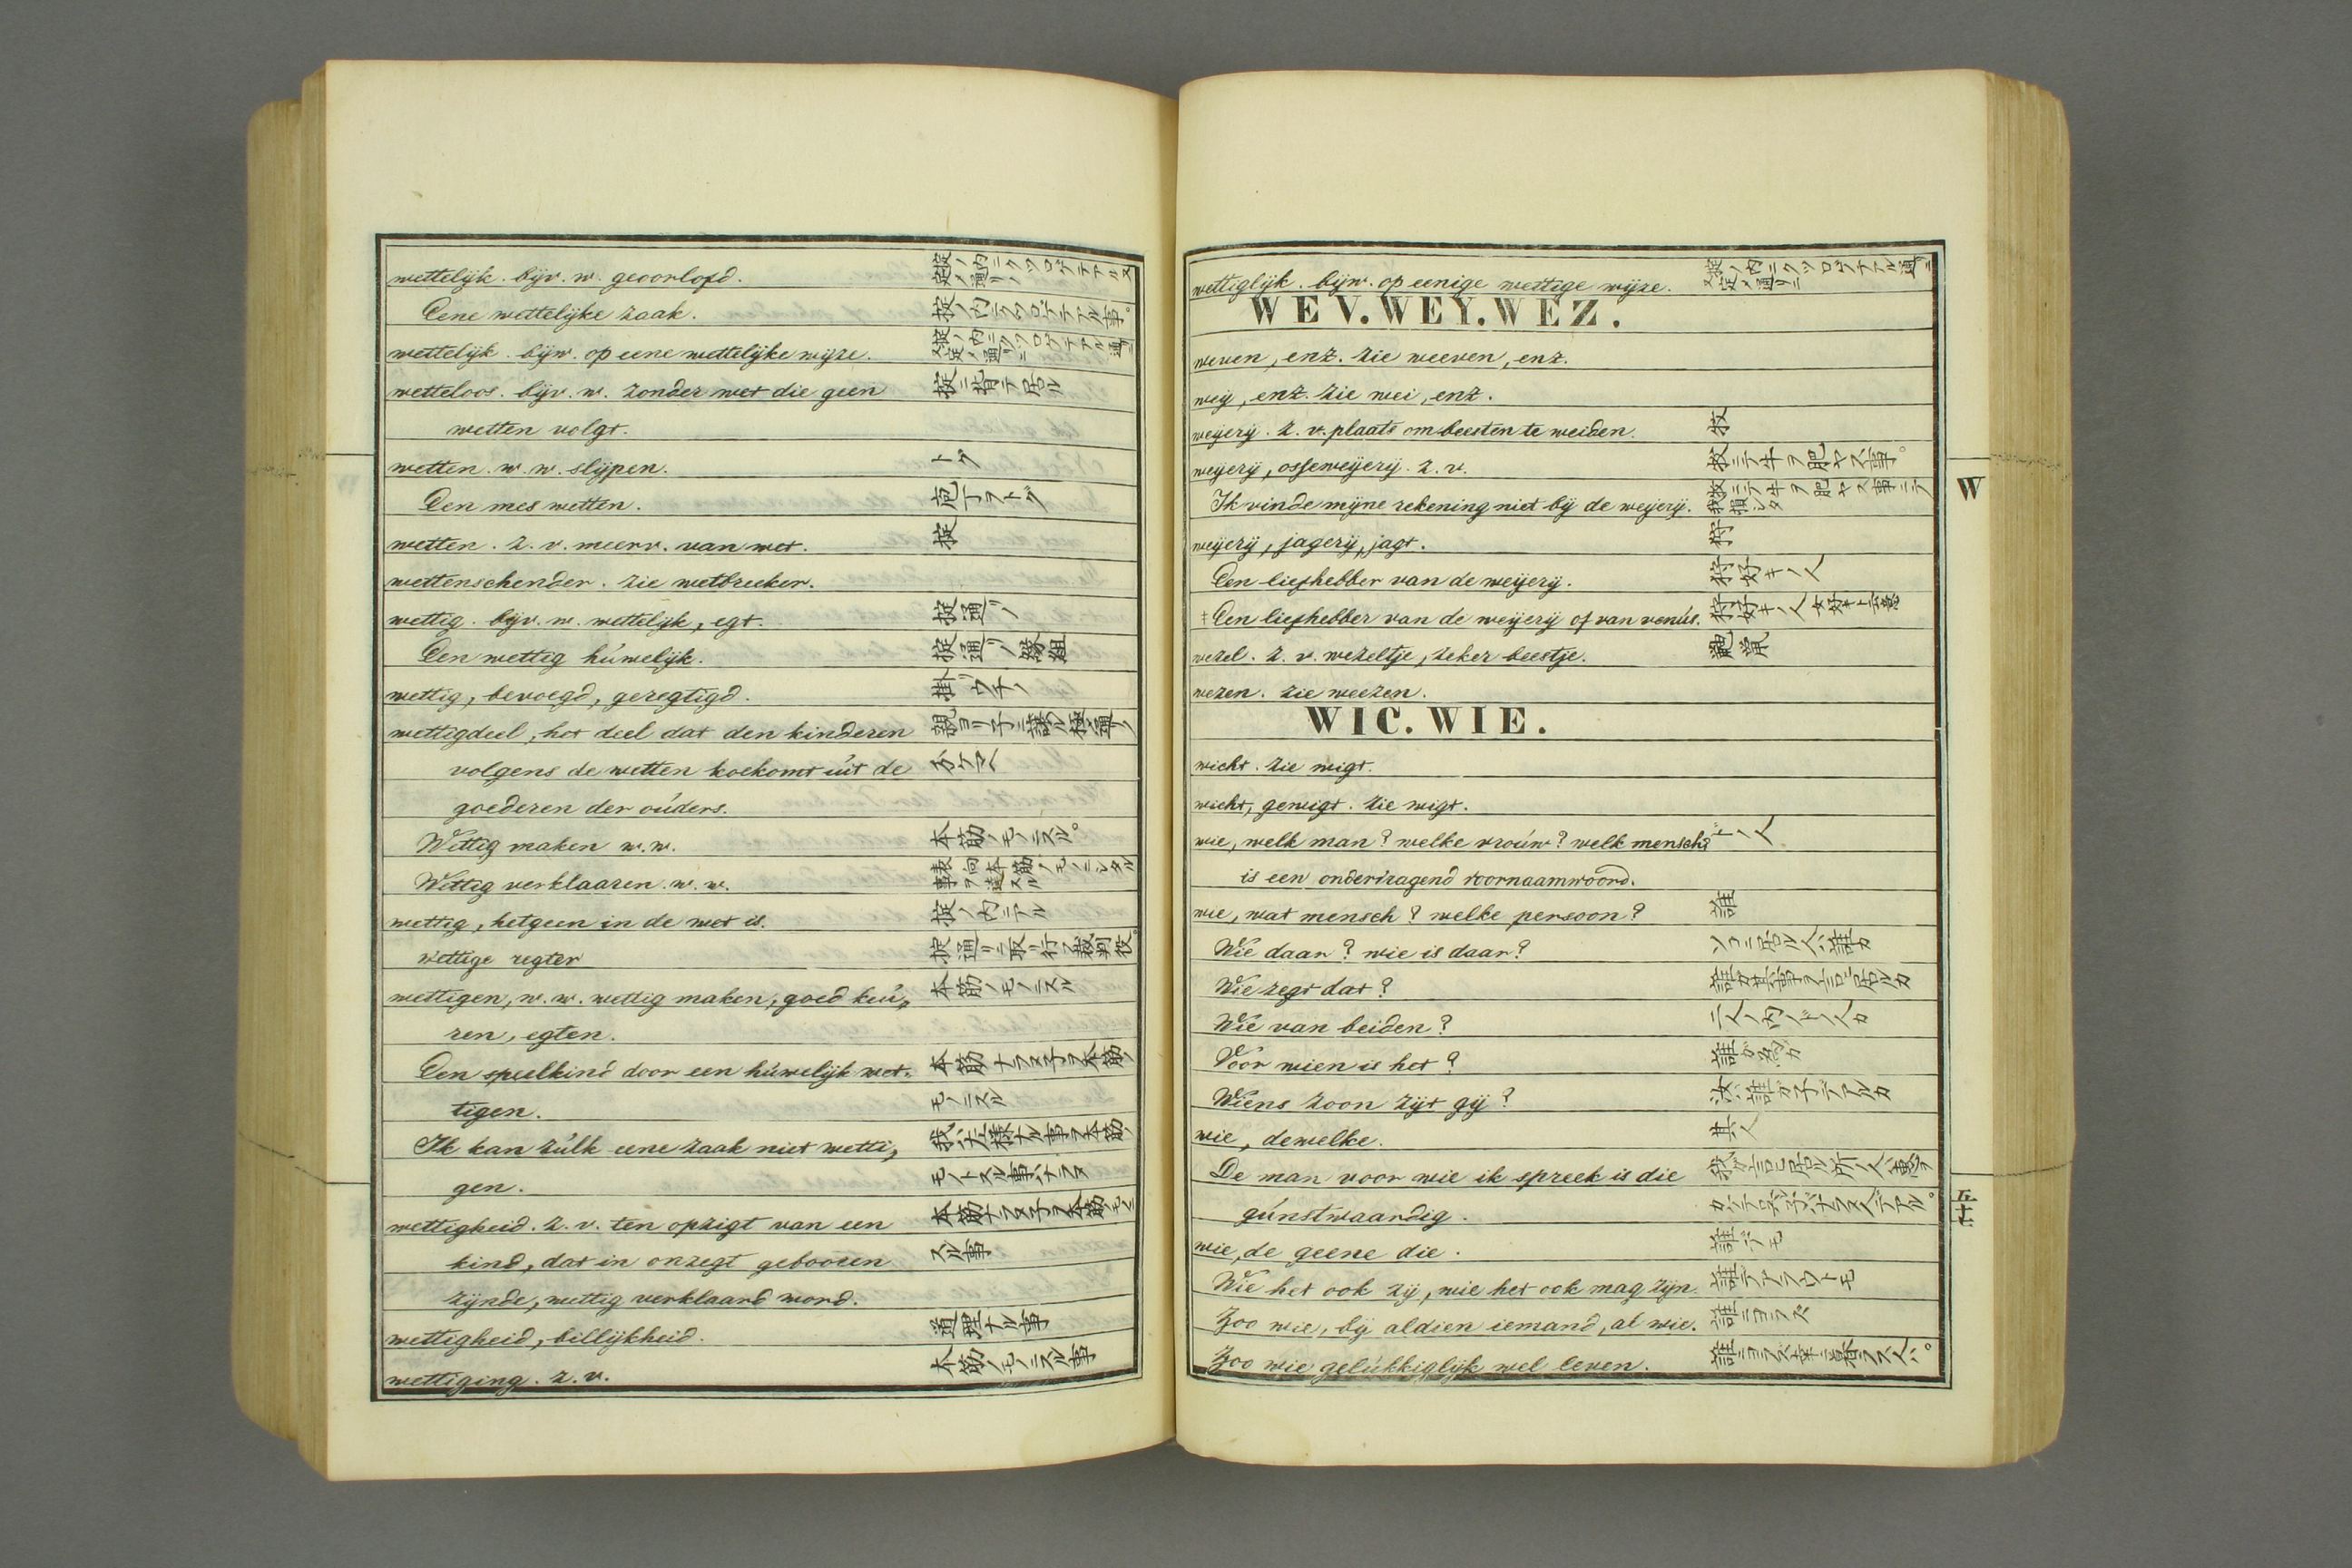 wettelijk. bijv. w. geoorlofd.
Eene wettelijke zaak. 掟ノ内ニクツロゲテアル事。
wettelijk. bijw. op eene wettelijke wijze.
wetteloos. bijv. w. zonder wet die geen 掟ニ背テ居ル
wetten volgt.
wetten. w. w. slijpen. トグ
Een mes wetten. 庖丁ヲトグ
wetten. z. v. meerv. van wet. 掟
wettenschender. zie wetbreeker.
wettig. bijv. w. wettelijk, egt. 掟通リノ
Een wettig húwelijk. 掟通リノ縁組
wettig, bevoegd, geregtigd.
wettigdeel, het deel dat den kinderen 親ヨリ子ニ譲ル掟通リノ
volgens de wetten toekomt úit de
goederen der oúders.
Wettig maken w. w. 本筋ノモノニスル。
Wettig verklaaren. w. w.
wettig, hetgeen in de wet is. 掟ノ内ニアル
wettige regter 掟通リニ取リ行フ裁判役。
wettigen, w. w. wettig maken, goed keú„ 本筋ノモノニスル
ren, egten.
Een speelkind door een húwelijk wet„ 本筋ナラヌ子ヲ本筋ノ
tigen. モノニスル
Ik kan zúlk eene zaak niet wetti„ 我ハ左様ナル事ヲ本筋ノ
gen. モノトスル事ハナラヌ
wettigheid. z. v. ten opzigt van een 本筋ナラヌ子ヲ本筋ノモノニ
kind, dat in onregt gebooren スル事
zijnde, wettig verklaard word.
wettigheid, billijkheid. 道理ナル事
wettiging. z. v. 本筋ノモノニスル事
wettiglijk. bijw. op eenige wettige wijze.
WEV. WEY. WEZ.
weven, enz. zie weeven, enz.
weij, enz. zie wei, enz.
weijerij. z. v. plaats om beesten te weiden. 牧
weijerij, osseweijerij. z. v. 牧ニテ牛ヲ肥ヤス事。
Ik vinde mijne rekening niet bij de weijerij.
weijerij, jagerij, jagt. 狩
Een liefhebber van de weijerij. 狩好キノ人
‡ Een liefhebber van de weijerij of van venús.
wezel. z. v. wezeltje, zeker beestje.
wezen. zie weezen.
WIC. WIE.
wicht. zie wigt.
wicht, gewigt. zie wigt.
wie, welk man? welke vroúw? welk mensch? ドノ人
is een ondervragend voornaamwoord.
wie, wat mensch? welke persoon? 誰
Wie daar? wie is daar? ソコニ居ル人ハ誰カ
Wie zegt dat? 誰ガ其事ヲ言テ居ルカ
Wie van beiden? 二人ノ内ノドノ人カ
Voor wien is het? 誰ガ為カ
Wiens zoon zijt gij? 汝ハ誰ガ子デアルカ
wie, dewelke. 其人
De man voor wie ik spreek is die
gúnstwaardig.
wie, de geene die. 誰デモ
Wie het ook zij, wie het ook mag zijn. 誰デアラウトモ
Zoo wie, bij aldien iemand, al wie. 誰ニヨラズ
Zoo wie gelúkkiglijk wel leven.
W